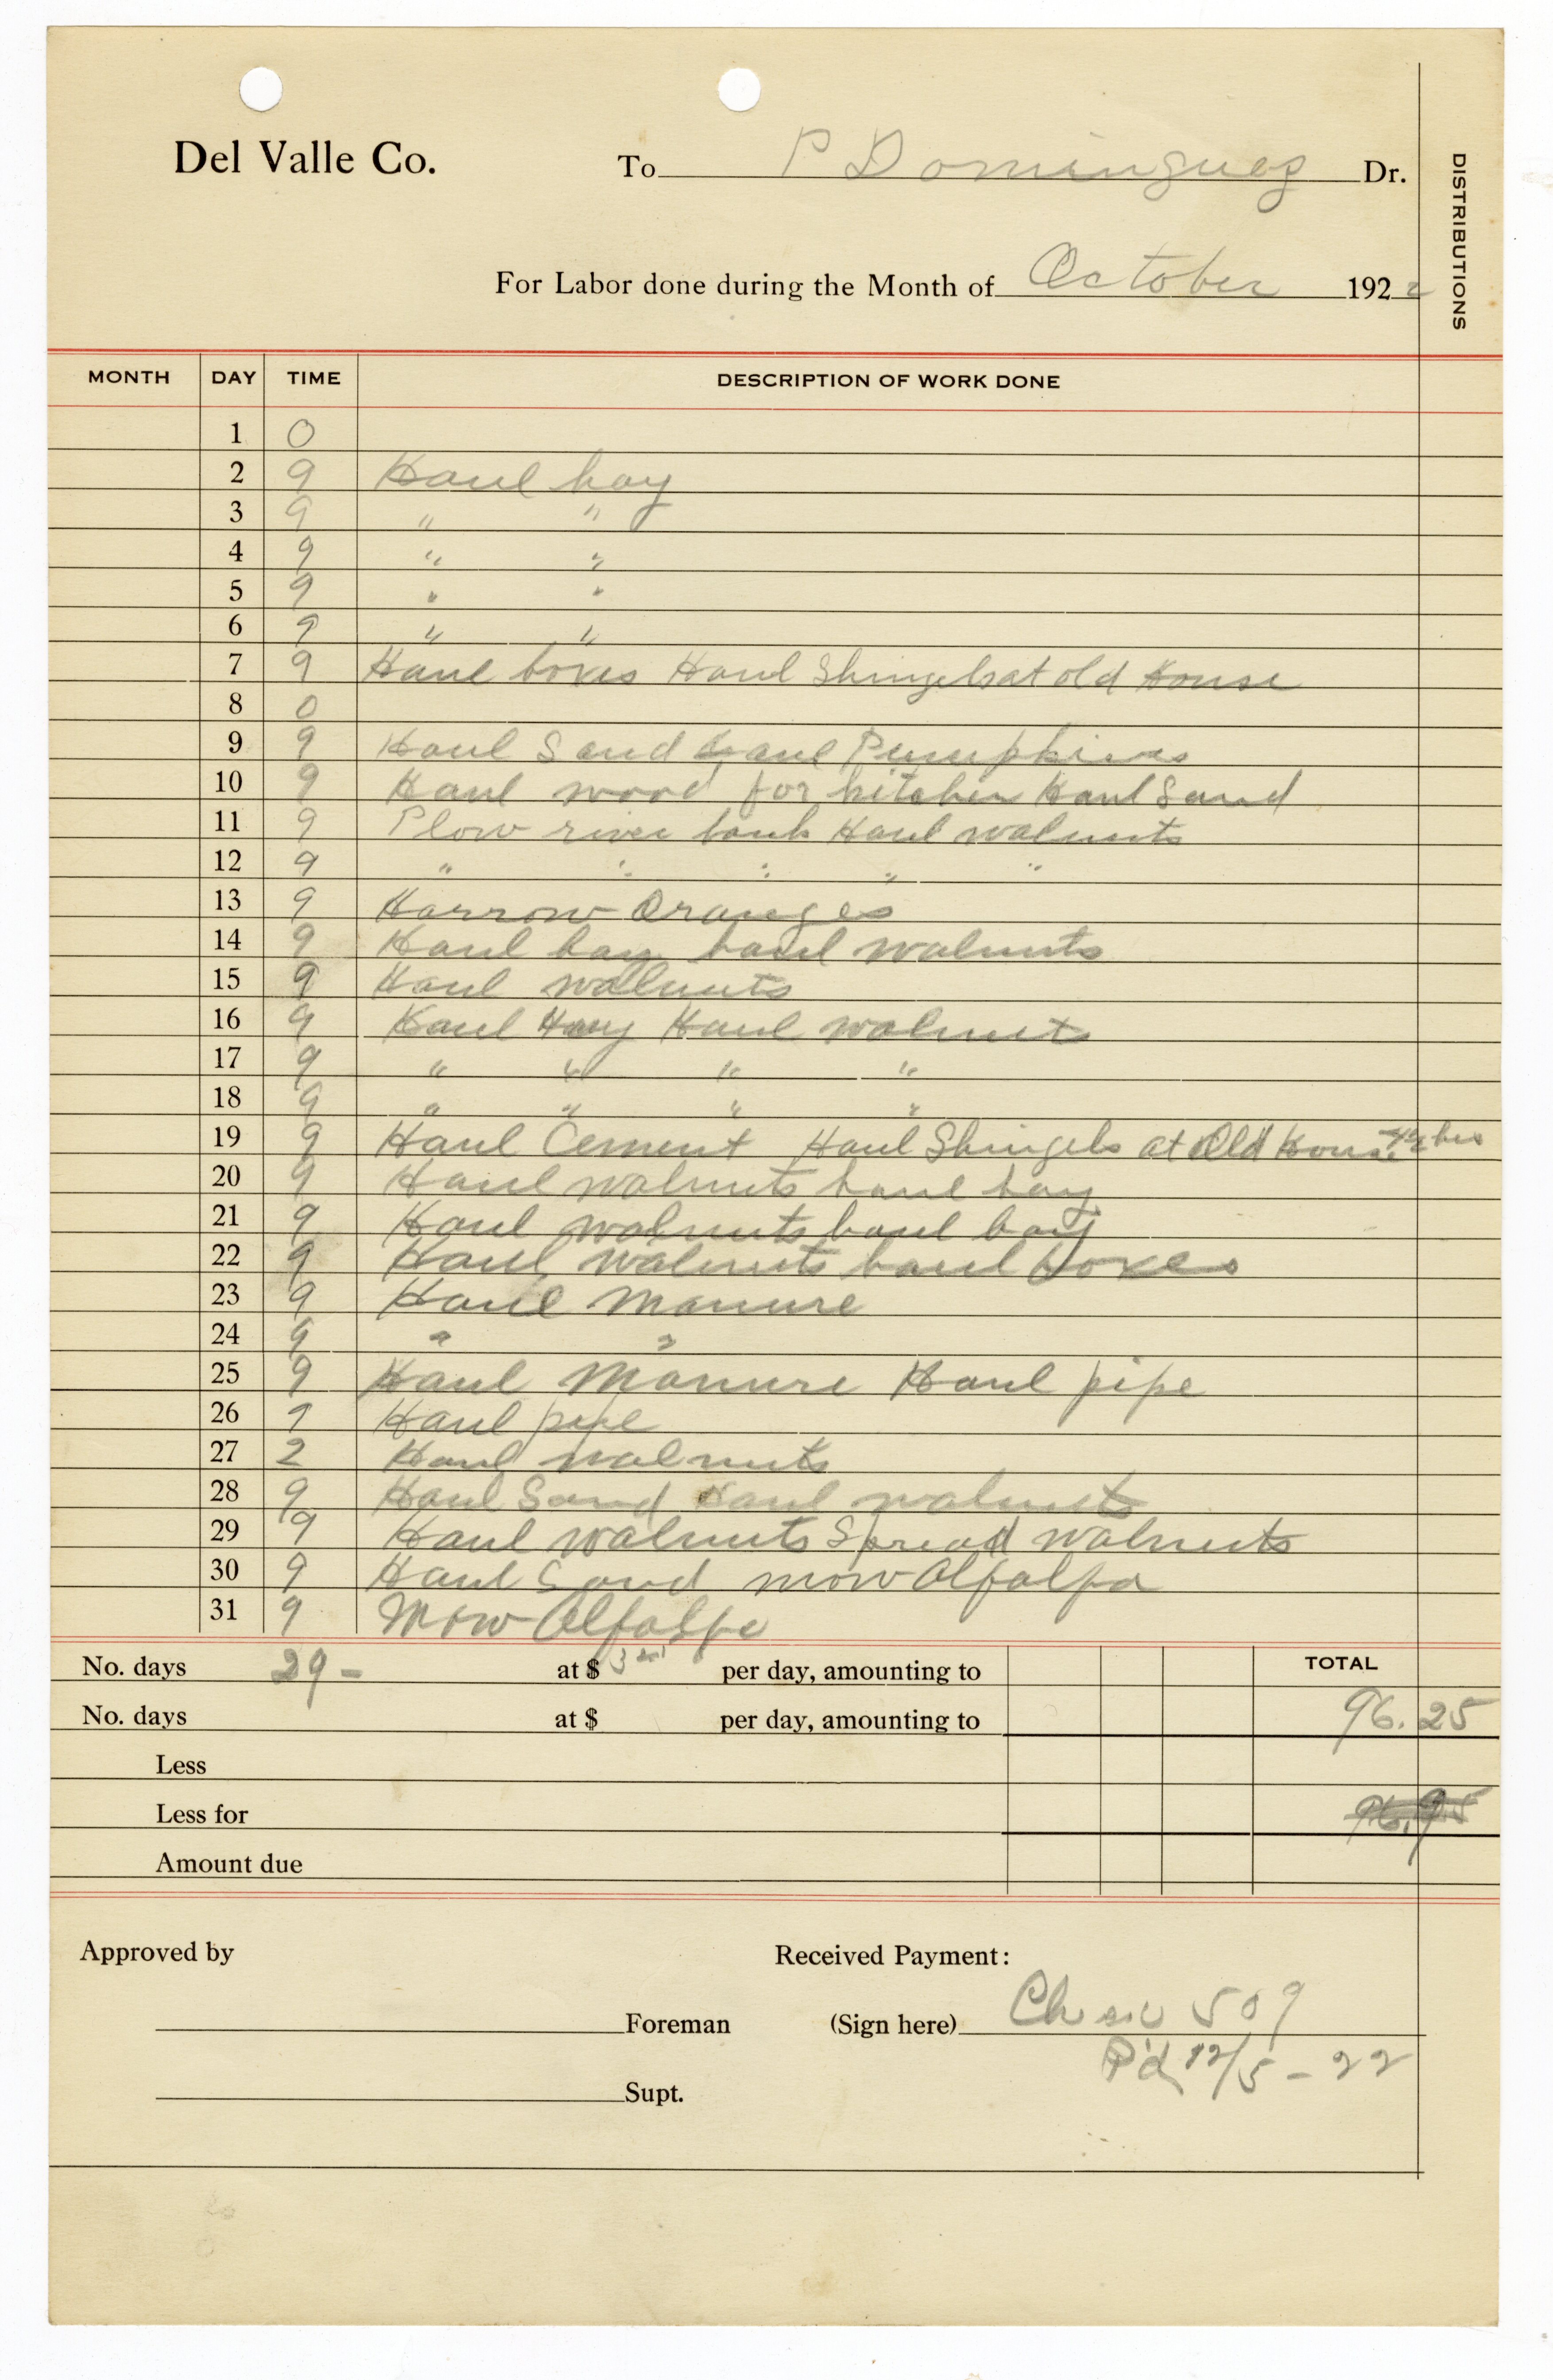 DISTRIBUTIONS
Del Valle Co. To P Dominguez Dr.
For Labor done during the Month of October 1922
MONTH DAY TIME DESCRIPTION OF WORK DONE
1 0
2 9 Haul hay
3 9 " "
4 9 " "
5 9 " "
6 9 " "
7 9 Haul boxes Haul Shingels at old House
8 0
9 9 Haul Sand Haul Pumpkins
10 9 Haul wood for kitchen Haul Sand
11 9 Plow river bank Haul walnuts
12 9 " " " " "
13 9 Harrow Oranges
14 9 Haul hay haul walnuts
15 9 Haul walnuts
16 9 Haul Hay Haul walnuts
17 9 " " " "
18 9 " " " "
19 9 Haul Cement Haul Shingels at Old House 4½ hrs
20 9 Haul walnuts haul hay
21 9 Haul walnuts haul hay
22 9 Haul walnuts haul boxes
23 9 Haul Manure
24 9 " "
25 9 Haul Manure Haul pipe
26 9 Haul pipe
27 2 Haul walnuts
28 9 Haul Sand Haul walnuts
29 9 Haul walnuts Spread walnuts
30 9 Haul Sand mow Alfalfa
31 9 Mow Alfalfa
No. days 29- at $ per day, amounting to TOTAL
No. days at $ per day, amounting to 96.25
Less
Less for
Amount due
Approved by Received Payment:
Foreman (Sign here) 509
Supt. Pd 12/5-22